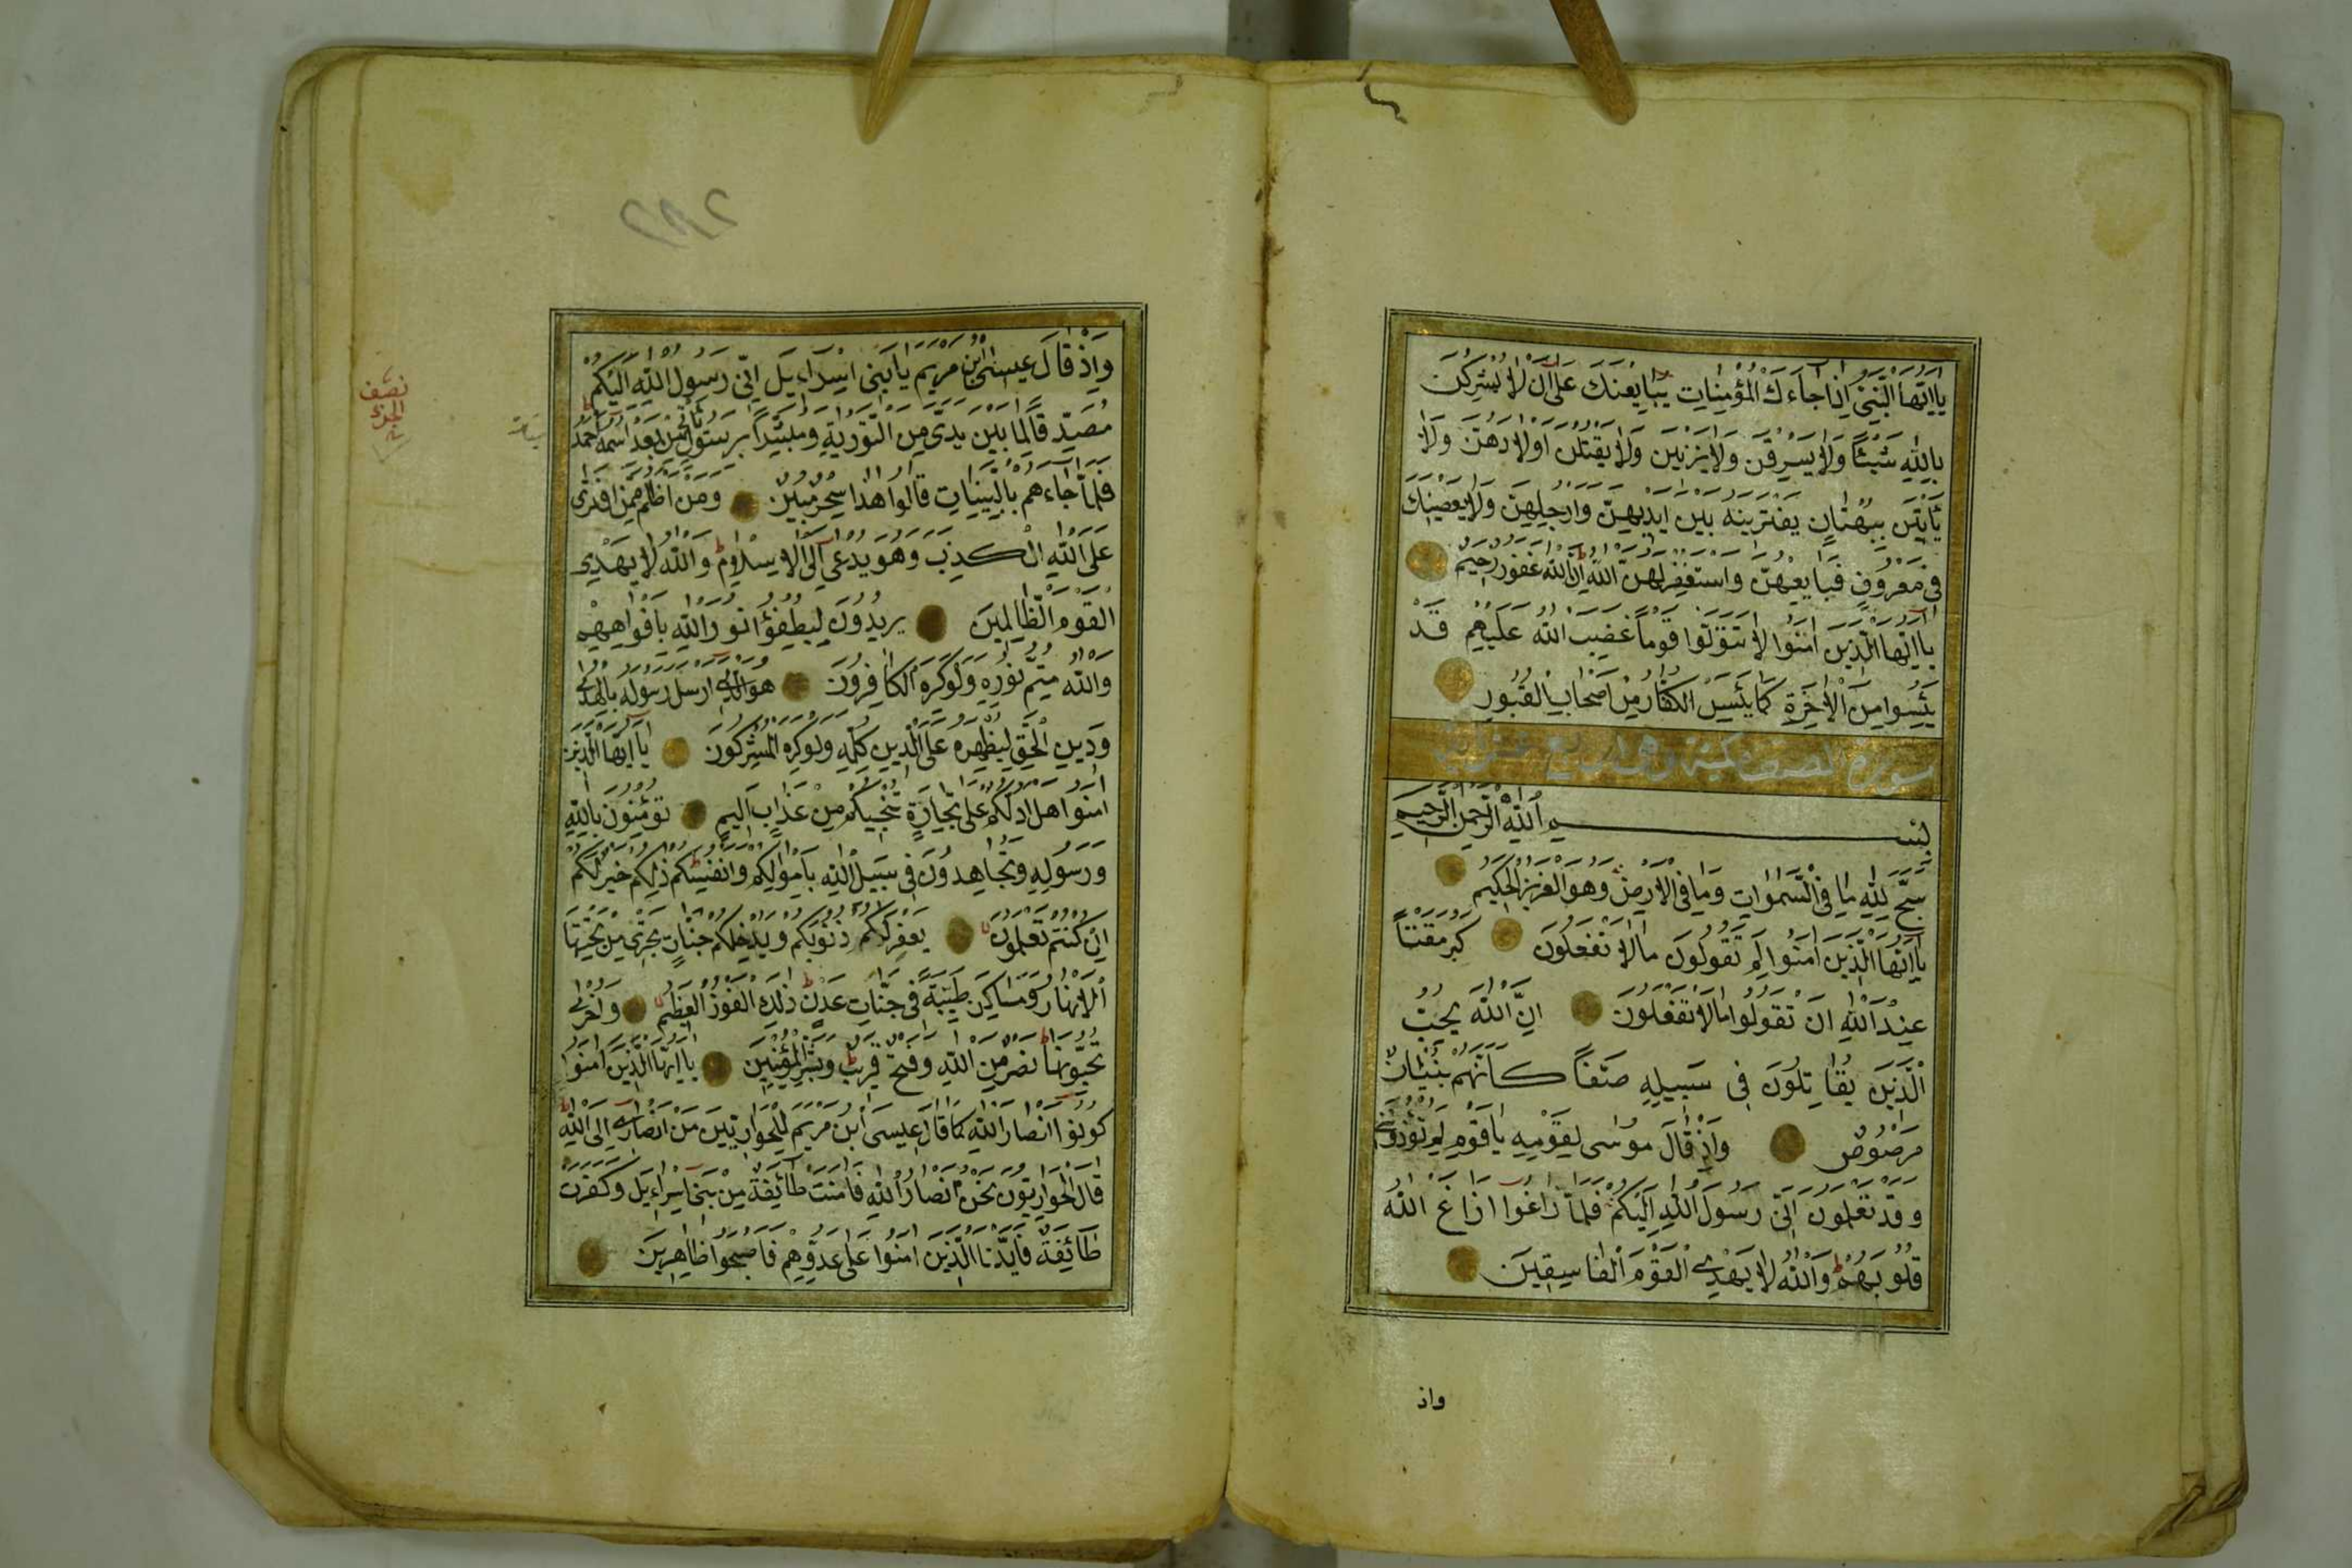 يا ايها النبي اذا جاءك المؤمنات يبايعنك على ان لا يشركن
بالله شيئا ولا يسرقن ولا يزنين ولا يقتلن اولادهن ولا
يأتين ببهتان يفترينه بين ايديهن وارجلهن ولا يعصينك
في معروف فبايعهن واستغفر لهن الله ان الله غفور رحيم
يا ايها الذين امنوا لا تتولوا قوما غضب الله عليهم قد
يئسوا من الاخرة كما يئس الكفار من اصحاب القبور
سورة الصف
بسم الله الرحمن الرحيم
سبح لله ما في السموات وما في الارض وهو العزيز الحكيم
يا ايها الذين امنوا لم تقولون ما لا تفعلون كبر مقتا
عند الله ان تقولوا ما لا تفعلون ان الله يحب
الذين يقاتلون في سبيله صفا كانهم بنيان
مرصوص واذ قال موسى لقومه يا قوم لم تؤذونني
وقد تعلمون اني رسول الله اليكم فلما زاغوا ازاغ الله
قلوبهم والله لا يهدي القوم الفاسقين
واذ
٢٩٢
واذ قال عيسى ابن مريم يا بني اسراءيل اني رسول الله اليكم
مصدقا لما بين يدي من التورية ومبشرا برسول يأتي من بعد اسمه احمد
فلما جاءهم بالبينات قالوا هذا سحر مبين ومن اظلم ممن افترى
على الله الكذب وهو يدعى الى الاسلام والله لا يهدي
القوم الظالمين يريدون ليطفؤا نور الله بافواههم
والله متم نوره ولو كره الكافرون هو الذي ارسل رسوله بالهدى
ودين الحق ليظهره على الدين كله ولو كره المشركون يا ايها الذين
امنوا هل ادلكم على تجارة تنجيكم من عذاب اليم تؤمنون بالله
ورسوله وتجاهدون في سبيل الله باموالكم وانفسكم ذلكم خير لكم
ان كنتم تعلمون يغفر لكم ذنوبكم ويدخلكم جنات تجري من تحتها
الانهار ومساكن طيبة في جنات عدن ذلك الفوز العظيم واخرى
تحبونها نصر من الله وفتح قريب وبشر المؤمنين يا ايها الذين امنوا
كونوا انصار الله كما قال عيسى ابن مريم للحواريين من انصاري الى الله
قال الحواريون نحن انصار الله فامنت طائفة من بني اسراءيل وكفرت
طائفة فايدنا الذين امنوا على عدوهم فاصبحوا ظاهرين
نصف
الجزء